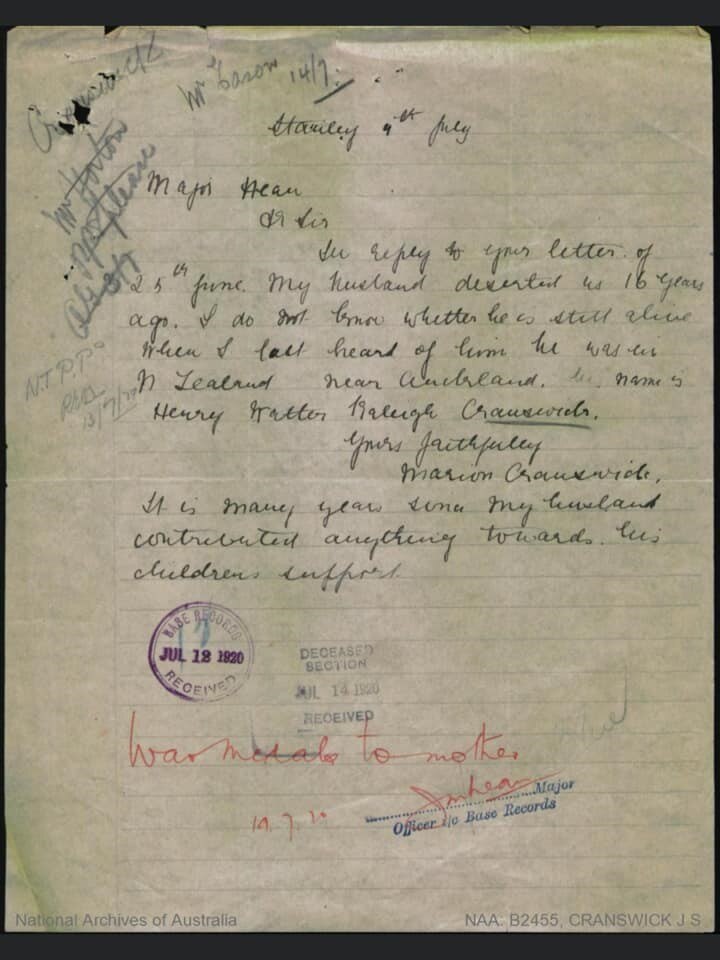 Cranswick
Mr Gason 14/7
Mr Horton
please
N.T.P.P.
13/7/20
Stanley 9th July
Major Hean
Dr Sir
In reply to your letter of
25th June. My husband deserted us 16 years
ago. I do not know whether he is still alive
When I last heard of him he was in
N Zealand near Auckland. his name is
Henry Walter Raleigh Cranswick.
Yours faithfully
Marion Cranswick.
It is many years since my husband
contributed anything towards his
childrens support
BASE RECORDS
JUL 12 1920
RECEIVED
DECEASED
SECTION
JUL 14 1920
RECEIVED
War Medals to mother
Major
Officer i/c Base Records
19.7.20
National Archives of Australia
NAA: B2455, CRANSWICK J S